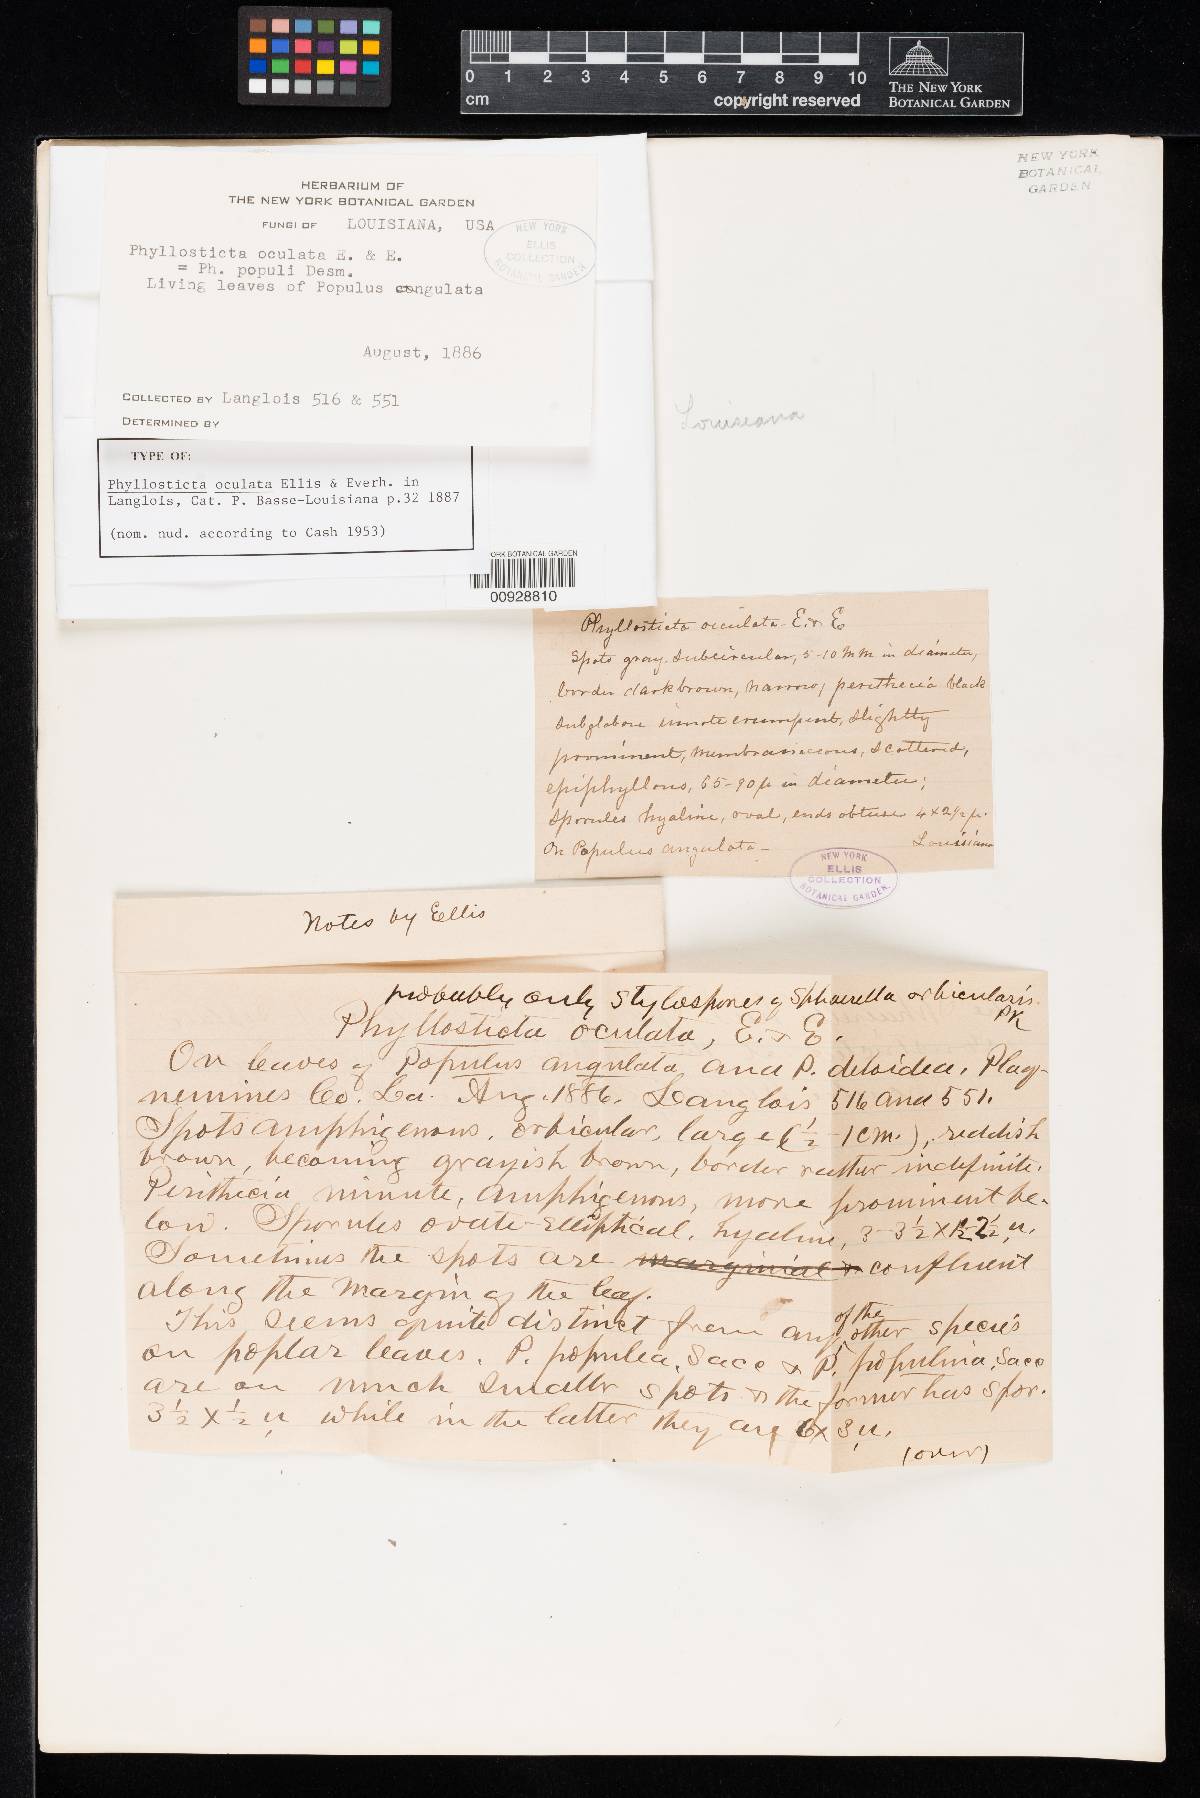 0 1 2 3 4 5 6 7 8 9 10
cm
copyright reserved
THE NEW YORK
BOTANICAL GARDEN
NEW YORK
BOTANICAL
GARDEN
HERBARIUM OF
THE NEW YORK BOTANICAL GARDEN
FUNGI OF LOUISIANA, USA
NEW YORK
ELLIS
COLLECTION
BOTANICAL GARDEN
Phyllosticta oculata E. & E.
= Ph. populi Desm.
Living leaves of Populus angulata
August, 1886
COLLECTED BY Langlois 516 & 551
DETERMINED BY
Louisiana
TYPE OF:
Phyllosticta oculata Ellis & Everh. in
Langlois, Cat. P. Basse-Louisiana p.32 1887
(nom. nud. according to Cash 1953)
ORK BOTANICAL GARDEN
00928810
Phyllosticta oculata E. & E
Spots gray. subcircular, 5-10 mm in diameter,
border dark brown, narrow; perithecia black
subglobose innate erumpent, slightly
prominent, membranaceous, scattered,
epiphyllous, 65-90 µ in diameter;
Sporules hyaline, oval, ends obtuse 4 x 2½ µ.
On Populus angulata - Louisiana
NEW YORK
ELLIS
COLLECTION
BOTANICAL GARDEN
Notes by Ellis
probably only stylospores of Sphaerella orbicularis.
PK
Phyllosticta oculata, E. & E.
On leaves of Populus angulata and P. deltoidea, Plaq-
uemines Co. La. Aug. 1886. Langlois 516 and 551.
Spots amphigenous, orbicular, large (½-1cm.), reddish
brown, becoming grayish brown, border rather indefinite.
Perithecia minute, amphigenous, more prominent be-
low. Sporules ovate-elliptical, hyaline, 3-3½ x 1½-2½ µ.
Sometimes the spots are marginial & confluent
along the margin of the leaf.
This seems quite distinct from any of the other species
on poplar leaves. P. populea, Sacc & P. populina, Sacc
are on much smaller spots & the former has spor.
3½ x ½ µ while in the latter they are 6 x 3 µ.
(over)